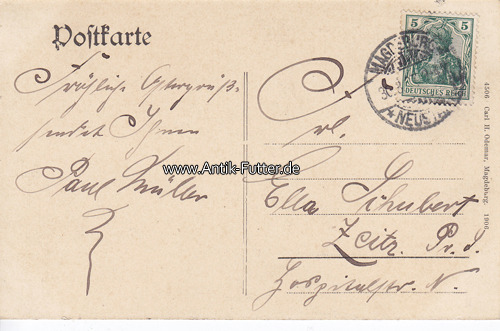 Postkarte
Fröhliche Ostergrüße
sendet Ihnen
Paul Müller
Frl.
Ella Schubert
Zeitz. Pr. S.
Hospitalstr. N.
5 5
DEUTSCHES REICH
MAGDEBURG
* NEUST
www.Antik-Futter.de
4506 Carl H. Odemar, Magdeburg. 1906.